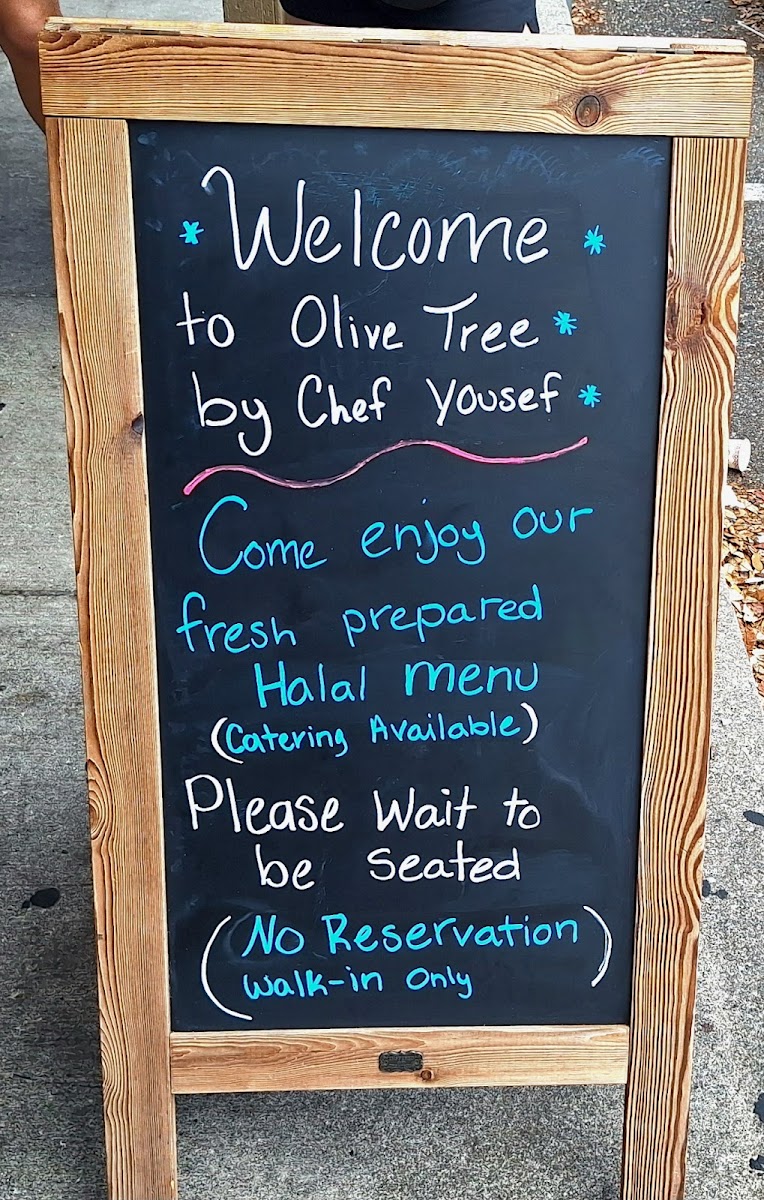 * Welcome *
to Olive Tree *
by Chef Yousef *
Come enjoy our
fresh prepared
Halal menu
(Catering Available)
Please Wait to
be Seated
(No Reservation
Walk-in Only)